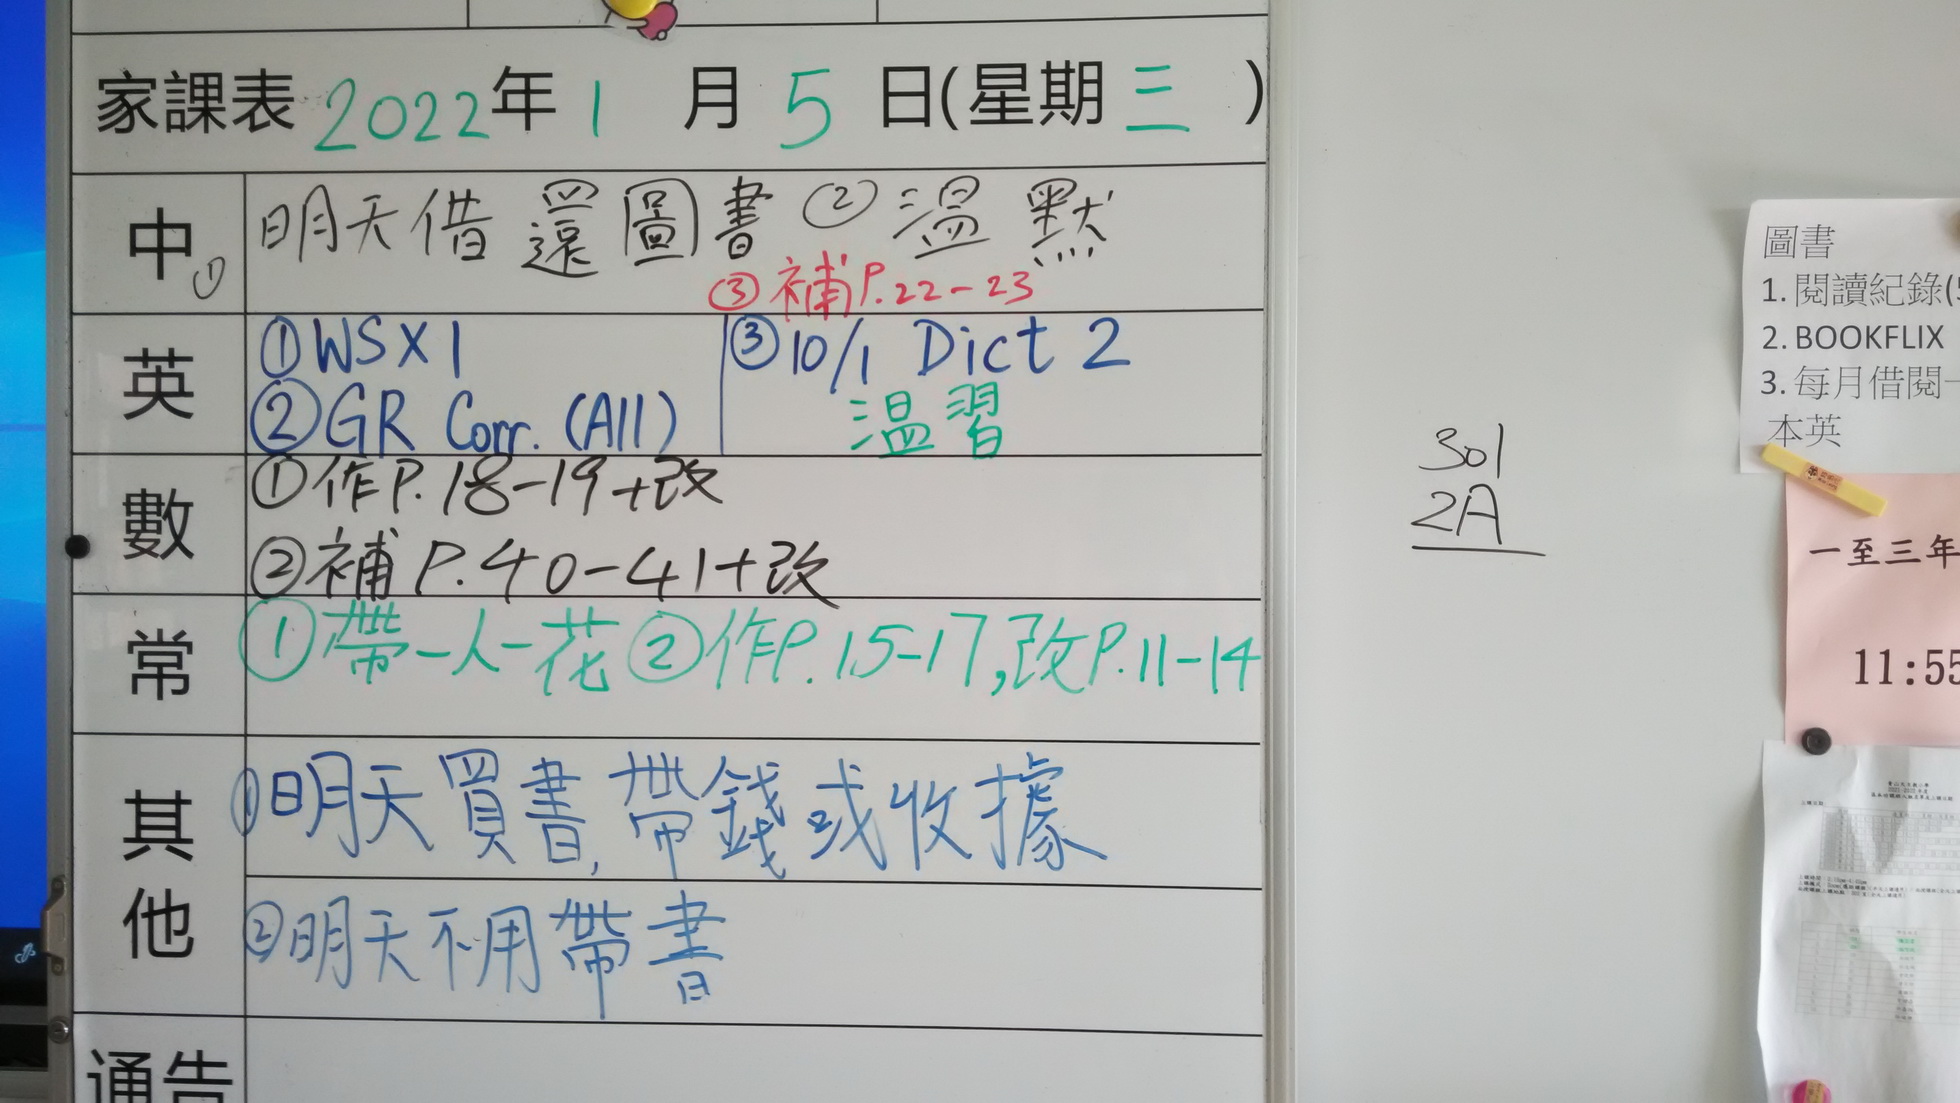 家課表 2022年 1 月 5 日(星期 三 )
中 ① 明天借還圖書 ② 温默
③ 補P.22-23
英 ① WS X 1
② GR Corr. (All)
③ 10/1 Dict 2
温習
數 ① 作P.18-19+改
② 補P.40-41+改
常 ① 帶一人一花 ② 作P.15-17,改P.11-14
其他 ① 明天買書,帶錢或收據
② 明天不用帶書
通告
301
2A
圖書
1. 閱讀紀錄(
2. BOOKFLIX
3. 每月借閱一
本英
一至三年
11:55